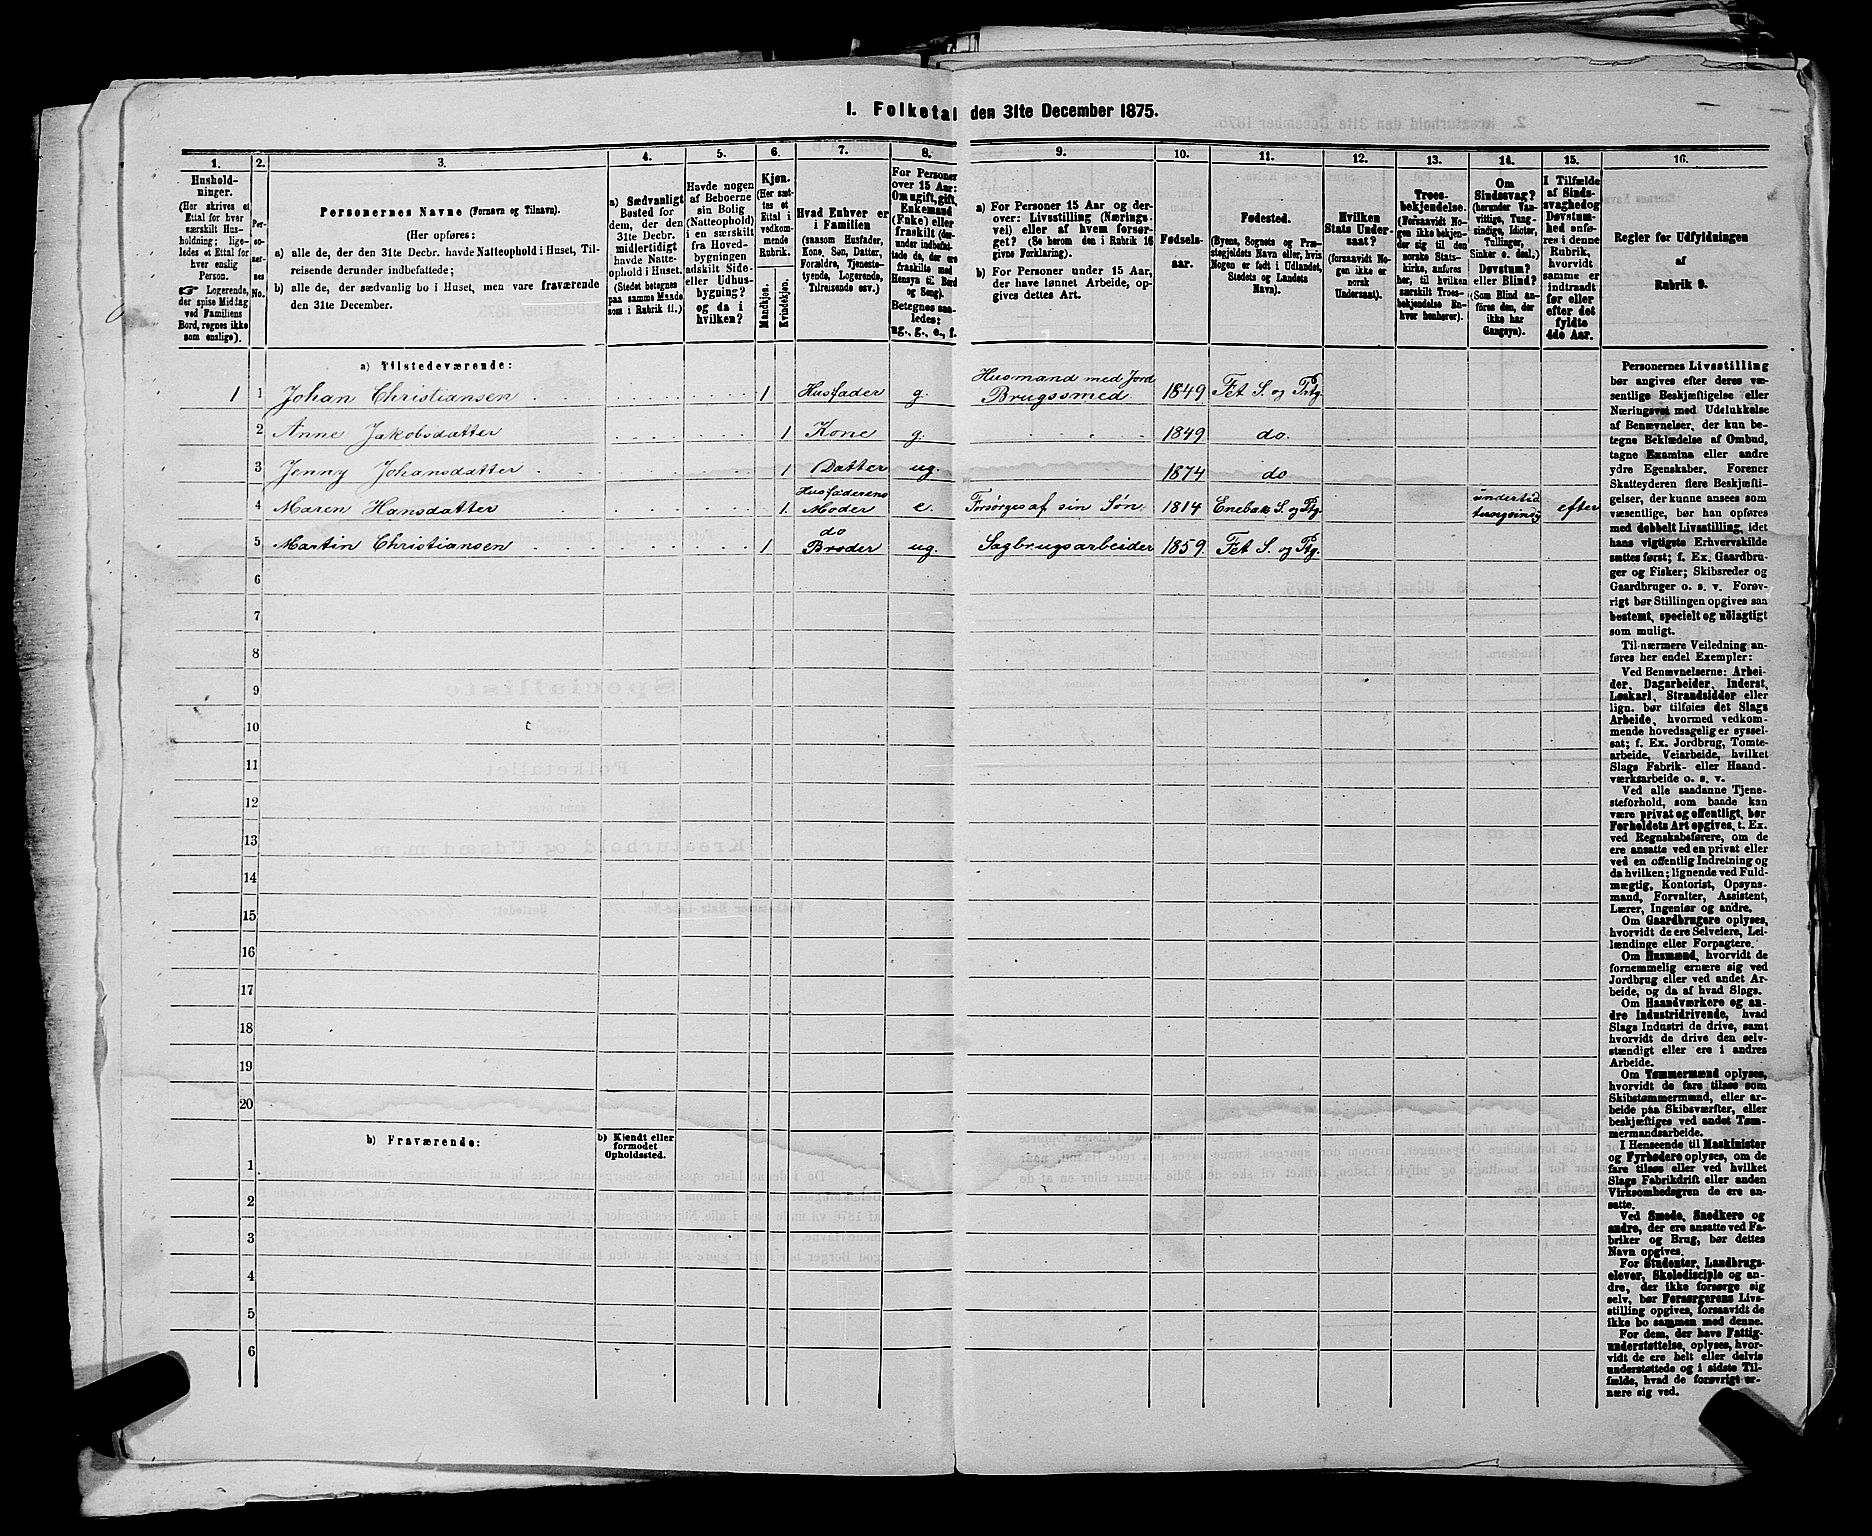 1. Folketal den 31te December 1875.
1. 2. 3. 4. 5. 6. 7. 8. 9. 10. 11. 12. 13. 14. 15. 16.
Hushold-
ninger.
(Her skrives et
Ettal for hver
særskilt Hus-
holdning; lige-
ledes et Ettal for
hver enslig
Person.
☞ Logerende,
der spise Middag
ved Familiens
Bord, regnes ikke
som enslige).
Per-
so-
ner-
nes
No.
Personernes Navne (Fornavn og Tilnavn).
(Her opføres:
a) alle de, der den 31te Decbr. havde Natteophold i Huset, Til-
reisende derunder indbefattede;
b) alle de, der sædvanlig bo i Huset, men vare fraværende
den 31te December.
a) Sædvanligt
Bosted for
dem, der den
31te Decbr.
midlertidigt
havde Natte-
ophold i Huset.
(Stedet betegnes
paa samme Maade
som i Rubrik 11.)
Havde nogen
af Beboerne
sin Bolig
(Natteophold)
i en særskilt
fra Hoved-
bygningen
adskilt Side-
eller Udhus-
bygning?
og da i
hvilken?
Kjøn.
(Her sæt-
tes et
Ettal i
vedkom-
mende
Rubrik.
Mandkjøn.
Kvindekjøn.
Hvad Enhver er
i Familien
(saasom Husfader,
Kone, Søn, Datter,
Forældre, Tjeneste-
tyende, Logerende,
Tilreisende osv.)
For Personer
over 15 Aar:
Om ugift, gift,
Enkemand
(Enke) eller
fraskilt (der-
under indbefat-
tede de, der ere
fraskilte med
Hensyn til Bord
og Seng).
Betegnes saa-
ledes:
ug., g., e., f.
a) For Personer 15 Aar og der-
over: Livsstilling (Nærings-
vei) eller af hvem forsør-
get? (Se herom den i Rubrik 16
givne Forklaring).
b) For Personer under 15 Aar,
der have lønnet Arbeide, op-
gives dettes Art.
Fødsels-
aar.
Fødested.
(Byens, Sognets og Præ-
stegjeldets Navn eller, hvis
Nogen er født i Udlandet,
Stedets og Landets
Navn).
Hvilken
Stats Under-
saat?
(forsaavidt No-
gen ikke er
norsk
Undersaat).
Troes-
bekjendelse.
(Forsaavidt No-
gen ikke bekjen-
der sig til den
norske Stats-
kirke, anføres
her, til hvilken
særskilt Troes-
bekjendelse En-
hver henhører).
Om
Sindssvag?
(herunder Van-
vittige, Tung-
sindige, Idioter,
Tullinger,
Sinker o. desl.).
Døvstum?
eller Blind?
(Som Blind an-
føres den, der
ikke har
Gangsyn).
I Tilfælde
af Sinds-
svaghed og
Døvstum-
hed anfø-
res i denne
Rubrik,
hvorvidt
samme er
indtraadt
før eller
efter det
fyldte
4de Aar.
Regler for Udfyldningen
af
Rubrik 9.
a) Tilstedeværende:
1 1 Johan Christiansen 1 Husfader g. Husmand med Jord Brugssmed 1849 Fet S. og Prtg.
2 Anne Jakobsdatter 1 Kone g. 1849 do.
3 Jenny Johansdatter 1 Datter ug. 1874 do
4 Maren Hansdatter 1. Husfaderens Moder e. Forsørges af sin Søn 1814 Enebak S. og Ptg. undertid tungsindig efter
5 Martin Christiansen 1 do Broder ug. Sagbrugsarbeider 1859. Fet S. og Ptg.
6
7
8
9
10
11
12
13
14
15
16
17
18
19
20
b) Fraværende:
b) Kjendt eller
formodet
Opholdssted.
1
2
3
4
5
6
Personernes Livsstilling
bør angives efter deres væ-
sentlige Beskjæftigelse eller
Næringsvei med Udelukkelse
af Benævnelser, der kun be-
tegne Beklædelse af Ombud,
tagne Examina eller andre
ydre Egenskaber. Forener
Skatteyderen flere Beskjæfti-
gelser, der kunne ansees som
væsentlige, bør han opføres
med dobbelt Livsstilling, idet
hans vigtigste Erhvervskilde
sættes først; f. Ex. Gaardbru-
ger og Fisker; Skibsreder og
Gaardbruger o. s. v. Forøv-
rigt bør Stillingen opgives saa
bestemt, specielt og nøiagtigt
som muligt.
Til nærmere Veiledning an-
føres her endel Exempler:
Ved Benævnelserne: Arbei-
der, Dagarbeider, Inderst,
Løskarl, Strandsidder eller
lign. bør tilføies det Slags
Arbeide, hvormed vedkom-
mende hovedsagelig er syssel-
sat; f. Ex. Jordbrug, Tomte-
arbeide, Veiarbeide, hvilket
Slags Fabrik- eller Haand-
værksarbeide o. s. v.
Ved alle saadanne Tjene-
steforhold, som baade kan
være privat og offentligt, bør
Forholdets Art opgives, t. Ex.
ved Regnskabsførere, om de
ere ansatte ved en privat eller
ved en offentlig Indretning og
da hvilken; lignende ved Fuld-
mægtig, Kontorist, Opsyns-
mand, Forvalter, Assistent,
Lærer, Ingeniør og andre.
Om Gaardbrugere oplyses,
hvorvidt de ere Selveiere, Lei-
lændinge eller Forpagtere.
Om Husmænd, hvorvidt de
fornemmelig ernære sig ved
Jordbrug eller ved andet Ar-
beide, og da af hvad Slags.
Om Haandværkere og an-
dre Industridrivende, hvad
Slags Industri de drive, samt
hvorvidt de drive den selv-
stændigt eller ere i andres
Arbeide.
Om Tømmermænd oplyses,
hvorvidt de fare tilsøs som
Skibstømmermænd, eller ar-
beide paa Skibsværfter, eller
beskjæftiges ved andet Tøm-
mermandsarbeide.
I Henseende til Maskinister
og Fyrbødere oplyses, om de
fare tilsøs eller ved hvilket
Slags Fabrikdrift eller anden
Virksomhed de ere an-
satte.
Ved Smede, Snedkere og
andre, der ere ansatte ved Fa-
briker og Brug, bør dettes
Navn opgives.
For Studenter, Landbrugs-
elever, Skoledisciple og an-
dre, der ikke forsørge sig
selv, bør Forsørgerens Livs-
stilling opgives, forsaavidt de
ikke bo sammen med denne.
For dem, der have Fattig-
understøttelse, oplyses, hvor-
vidt de ere helt eller delvis
understøttede og i sidste Til-
fælde, hvad de forøvrigt er-
nære sig ved.